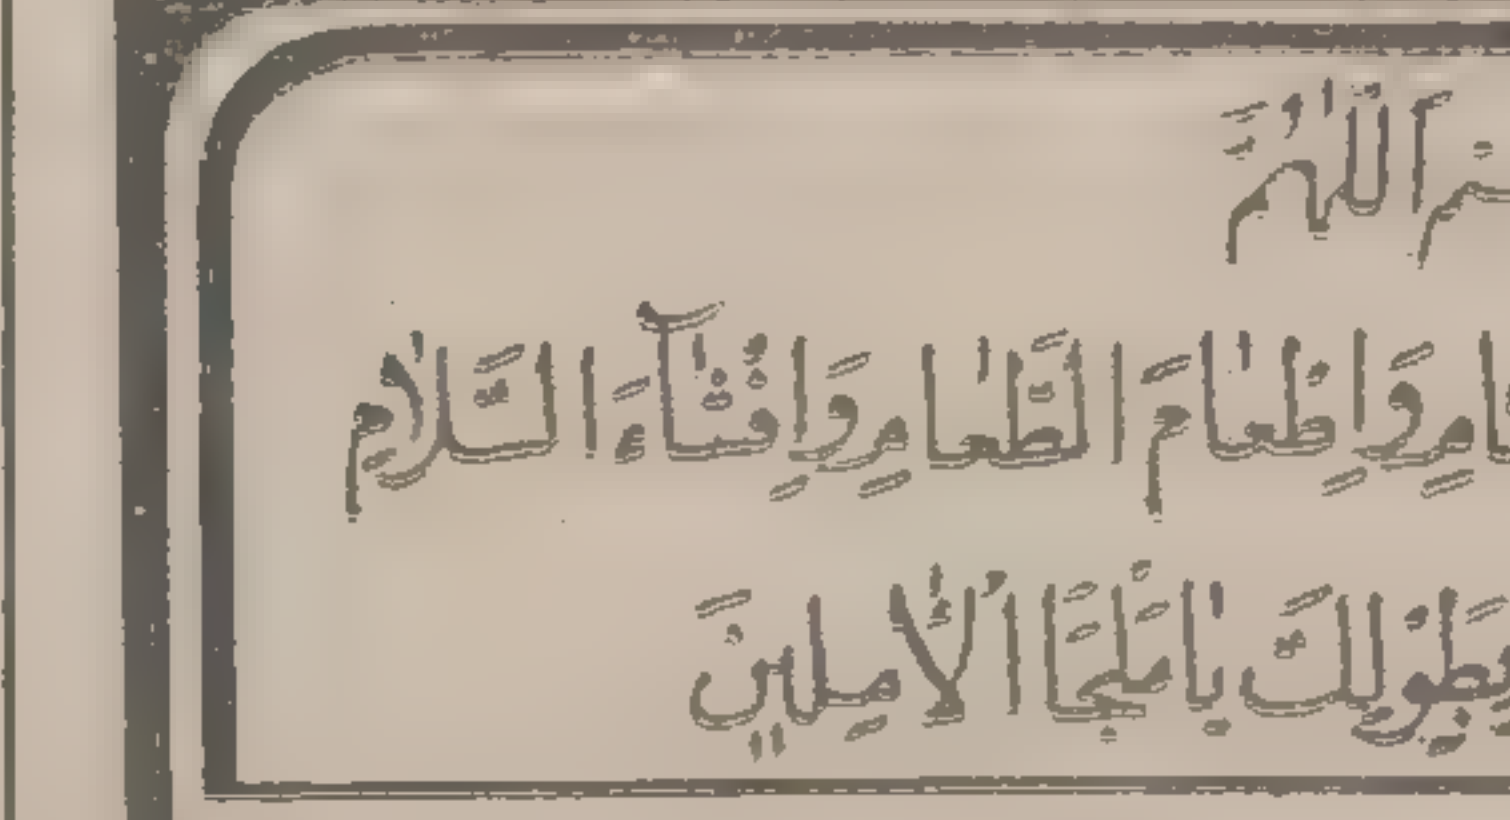 اَللّٰهُمَّ
وَاِطْعَامَ الطَّعَامِ وَاِفْشَآءَ السَّلَامِ
بِطَوْلِكَ يَا مَلْجَاَ الْاٰمِلِيْنَ